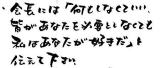 ・会長には「何もしなくていい、
皆があなたを必要としなくても
私はあなたが好きだ」と
伝えて下さい。